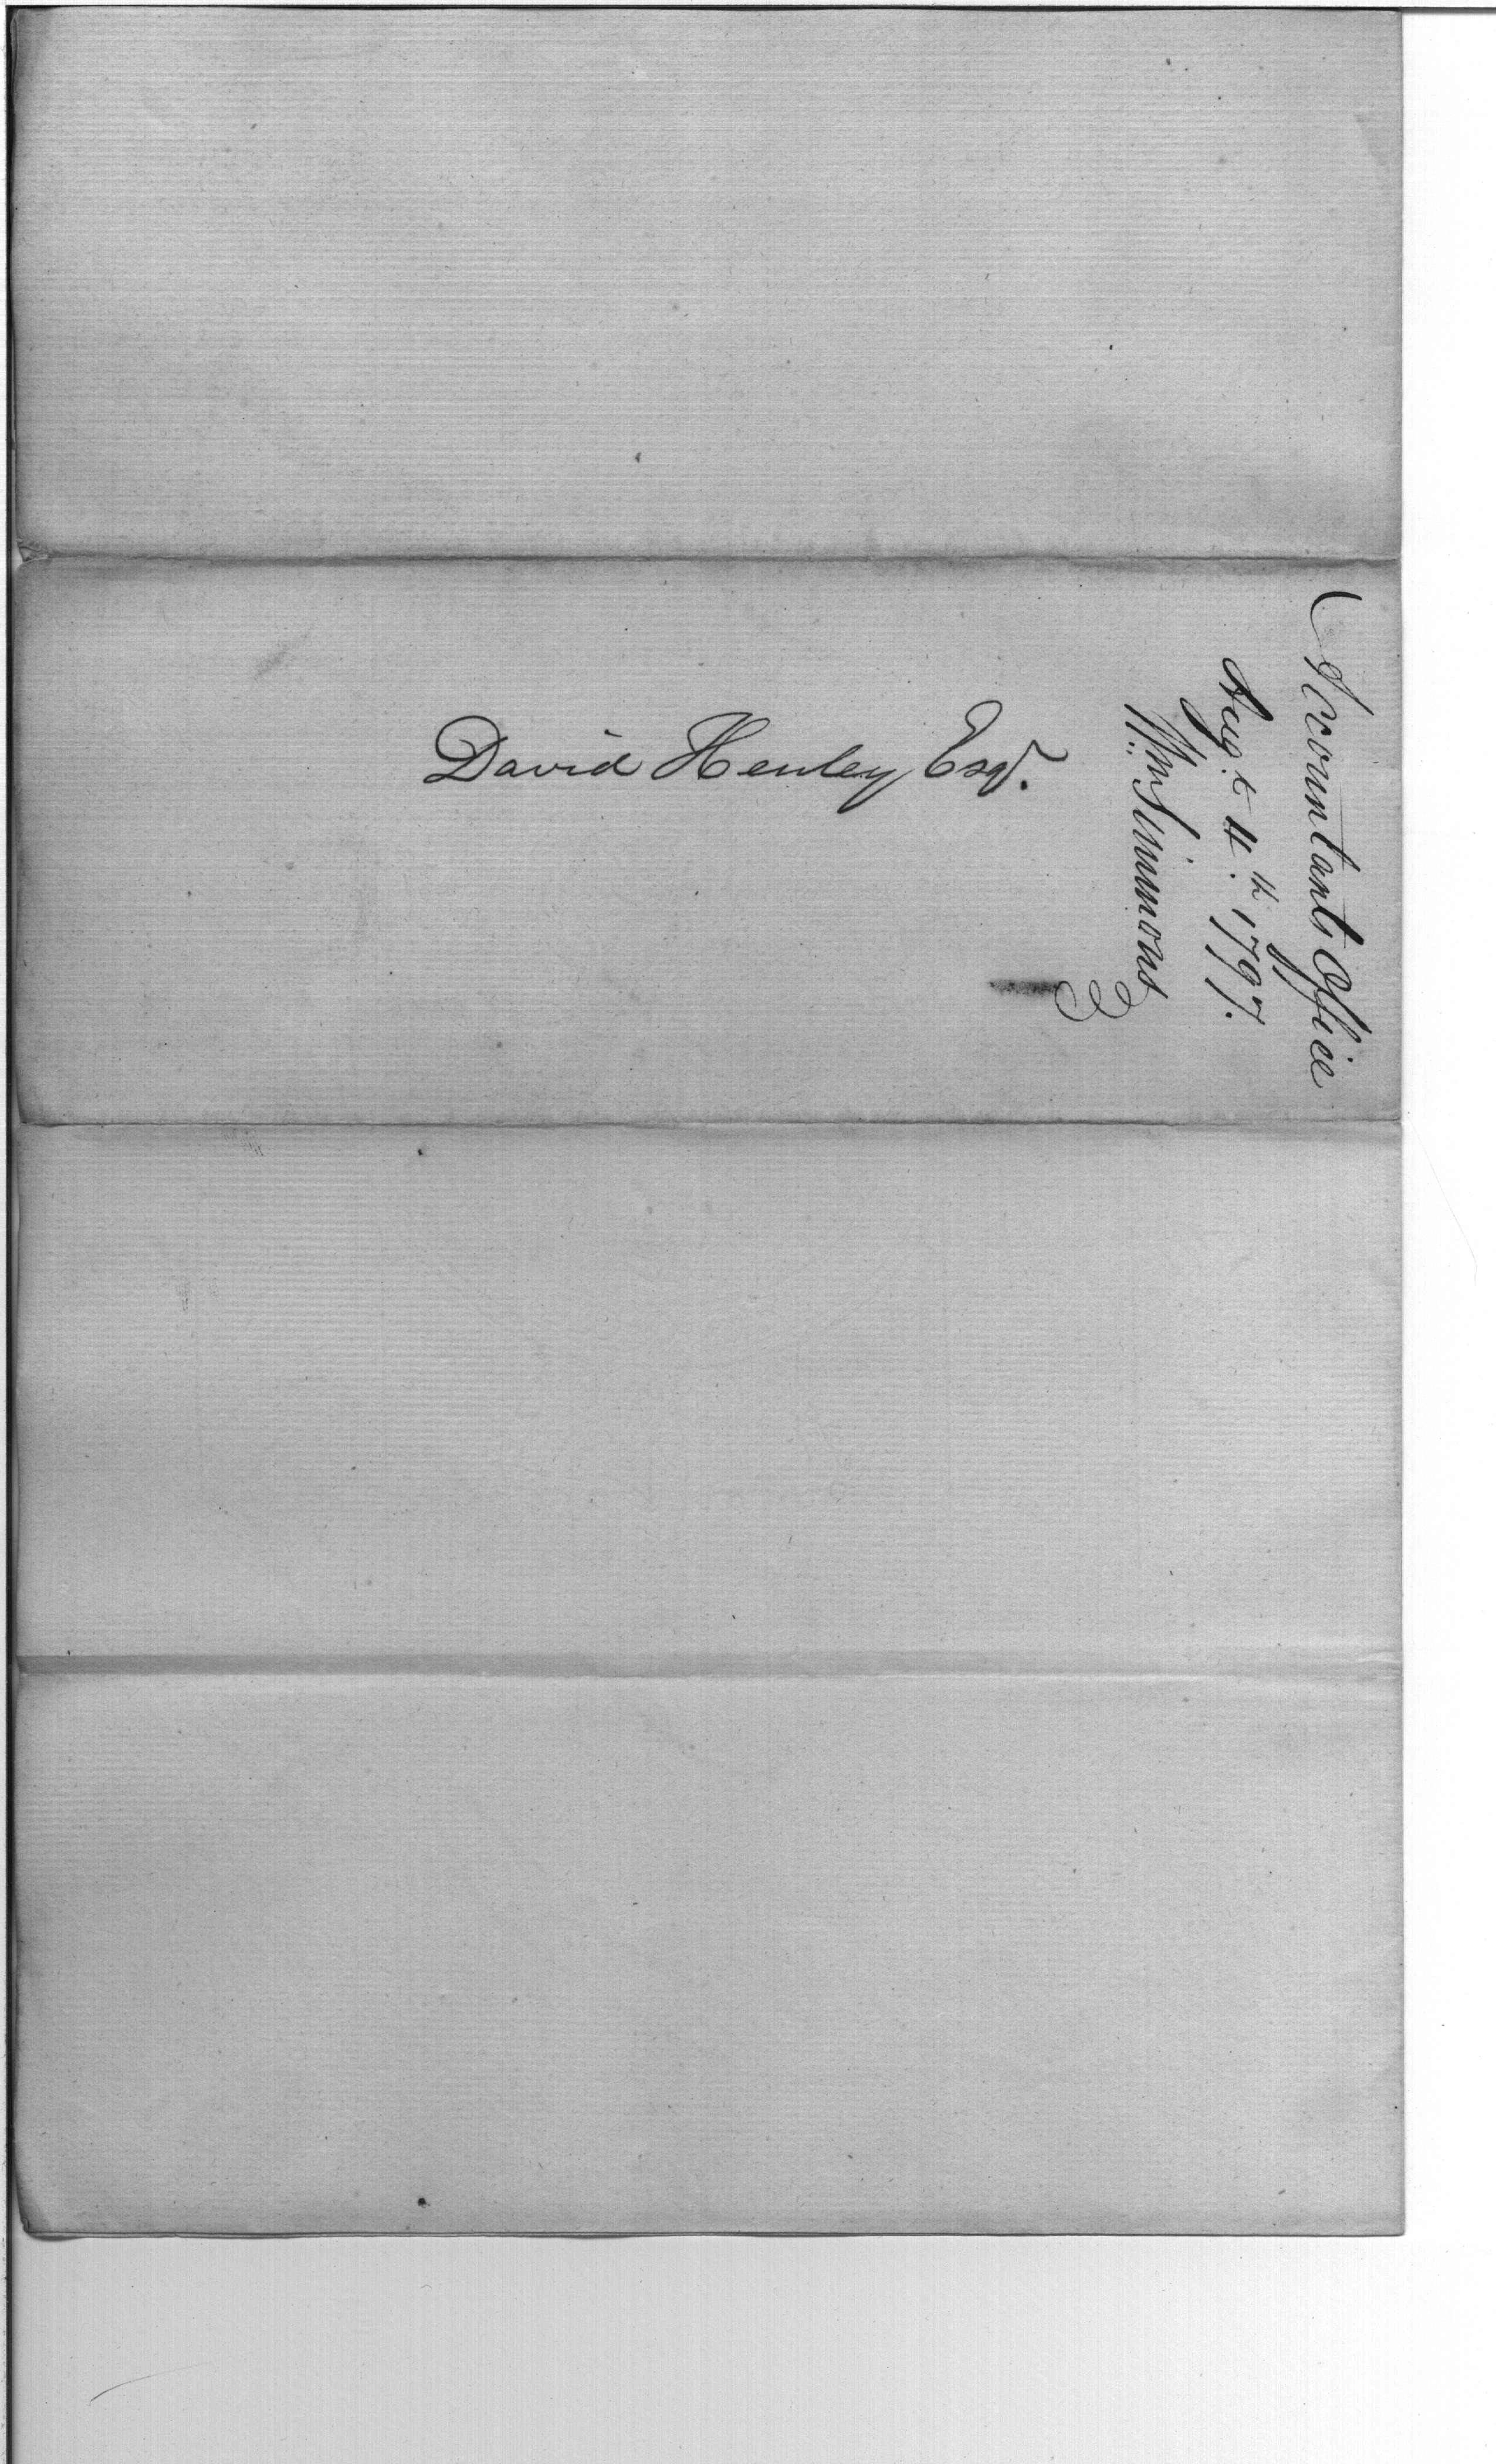 David Henley Esqr.
Accountants Office
Augt. 4th. 1797.
Wm Simmons